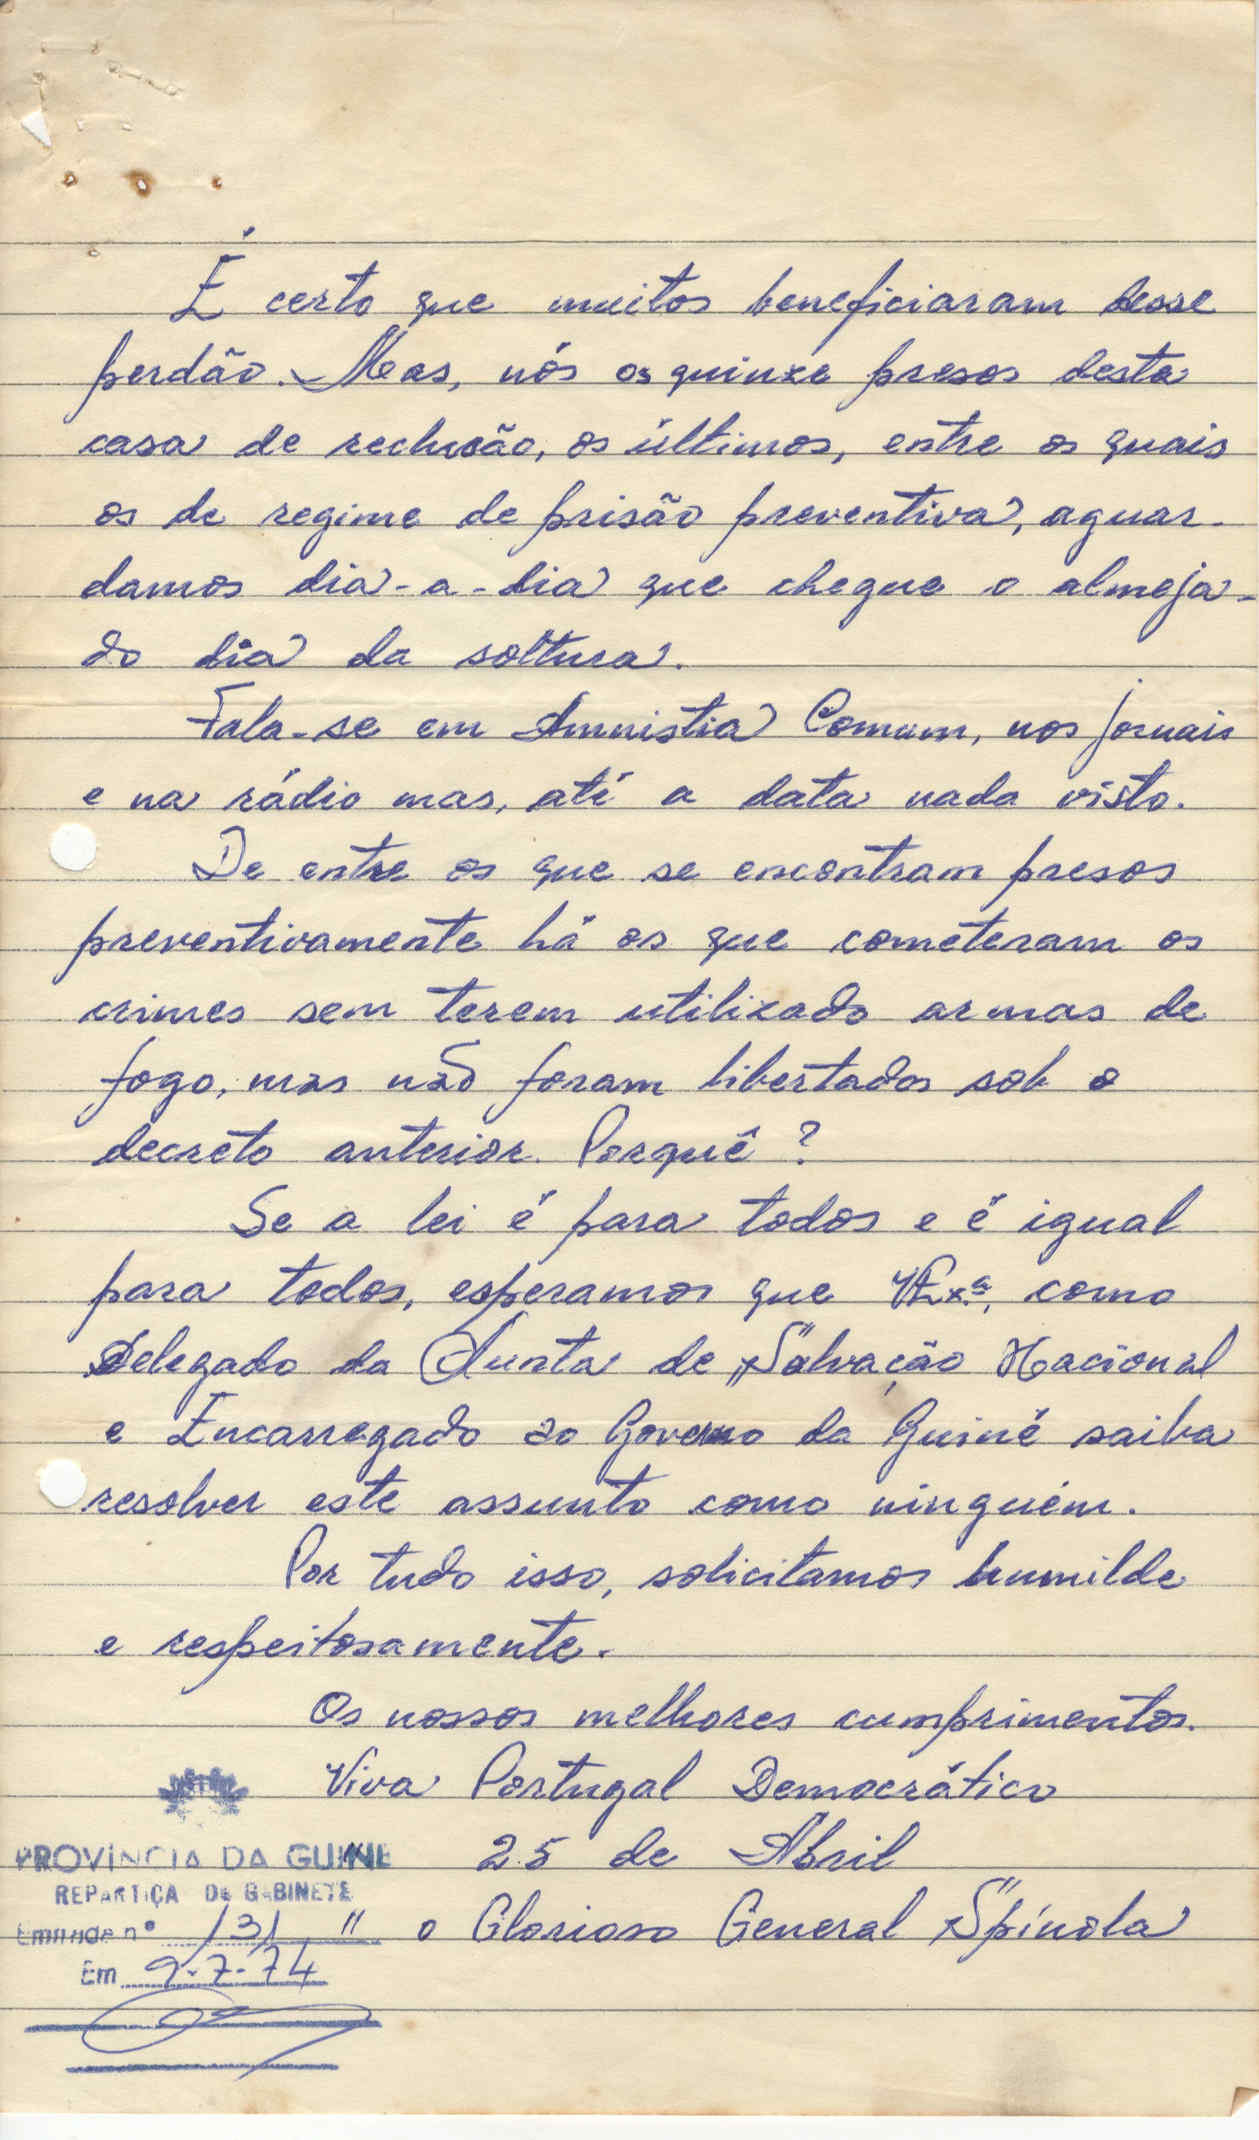 É certo que muitos beneficiaram desse
perdão. Mas, nós os quinze presos desta
casa de reclusão, os últimos, entre os quais
os de regime de prisão preventiva, aguar-
damos dia-a-dia que chegue o almeja-
do dia da soltura.
Fala-se em Amnistia Comum, nos jornais
e na rádio mas, até a data nada visto.
De entre os que se encontram presos
preventivamente há os que cometeram os
crimes sem terem utilizado armas de
fogo, mas não foram libertados sob o
decreto anterior. Porquê?
Se a lei é para todos e é igual
para todos, esperamos que V.Exª, como
Delegado da Junta de Salvação Nacional
e Encarregado do Governo da Guiné saiba
resolver este assunto como ninguém.
Por tudo isso, solicitamos humilde
e respeitosamente.
Os nossos melhores cumprimentos.
Viva Portugal Democrático
" 25 de Abril
" o Glorioso General Spínola
PROVÍNCIA DA GUINÉ
REPARTIÇA DE GABINETE
nº 131
Em 9-7-74